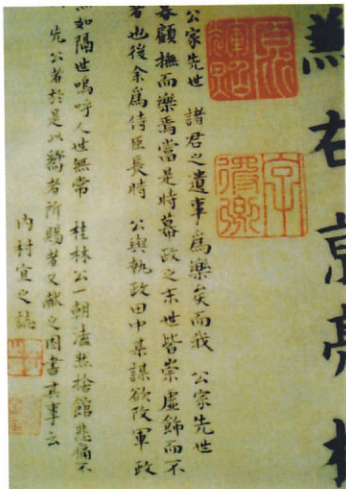 無右京亮
公家先世　諸君之遺事爲樂矣而我　公家先世
眷顧撫而樂焉當是時幕政之末世皆崇虛飾而不
者也後余爲侍臣長時　公與執政田中某謀欲改軍政
無如隔世嗚呼人世無常　桂林公一朝法然捨館悲痛不
先公者於是以嚮者所賜者又献之因書其事云
内村宜之誌